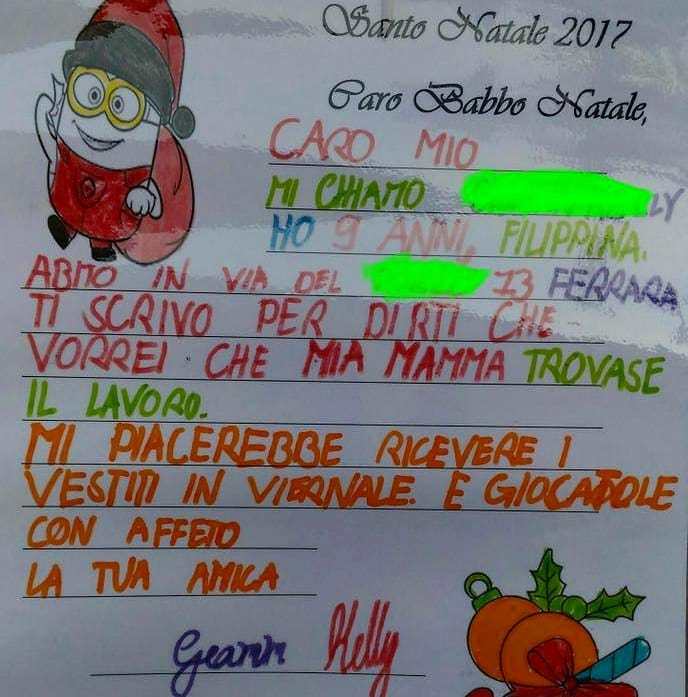 Santo Natale 2017
Caro Babbo Natale,
CARO MIO
MI CHIAMO LY
HO 9 ANNI, FILIPPINA.
ABITO IN VIA DEL 13 FERRARA
TI SCRIVO PER DIRTI CHE
VORREI CHE MIA MAMMA TROVASE
IL LAVORO.
MI PIACEREBBE RICEVERE I
VESTITI IN VIERNALE. E GIOCATOLE
CON AFFETO
LA TUA AMICA
Kelly